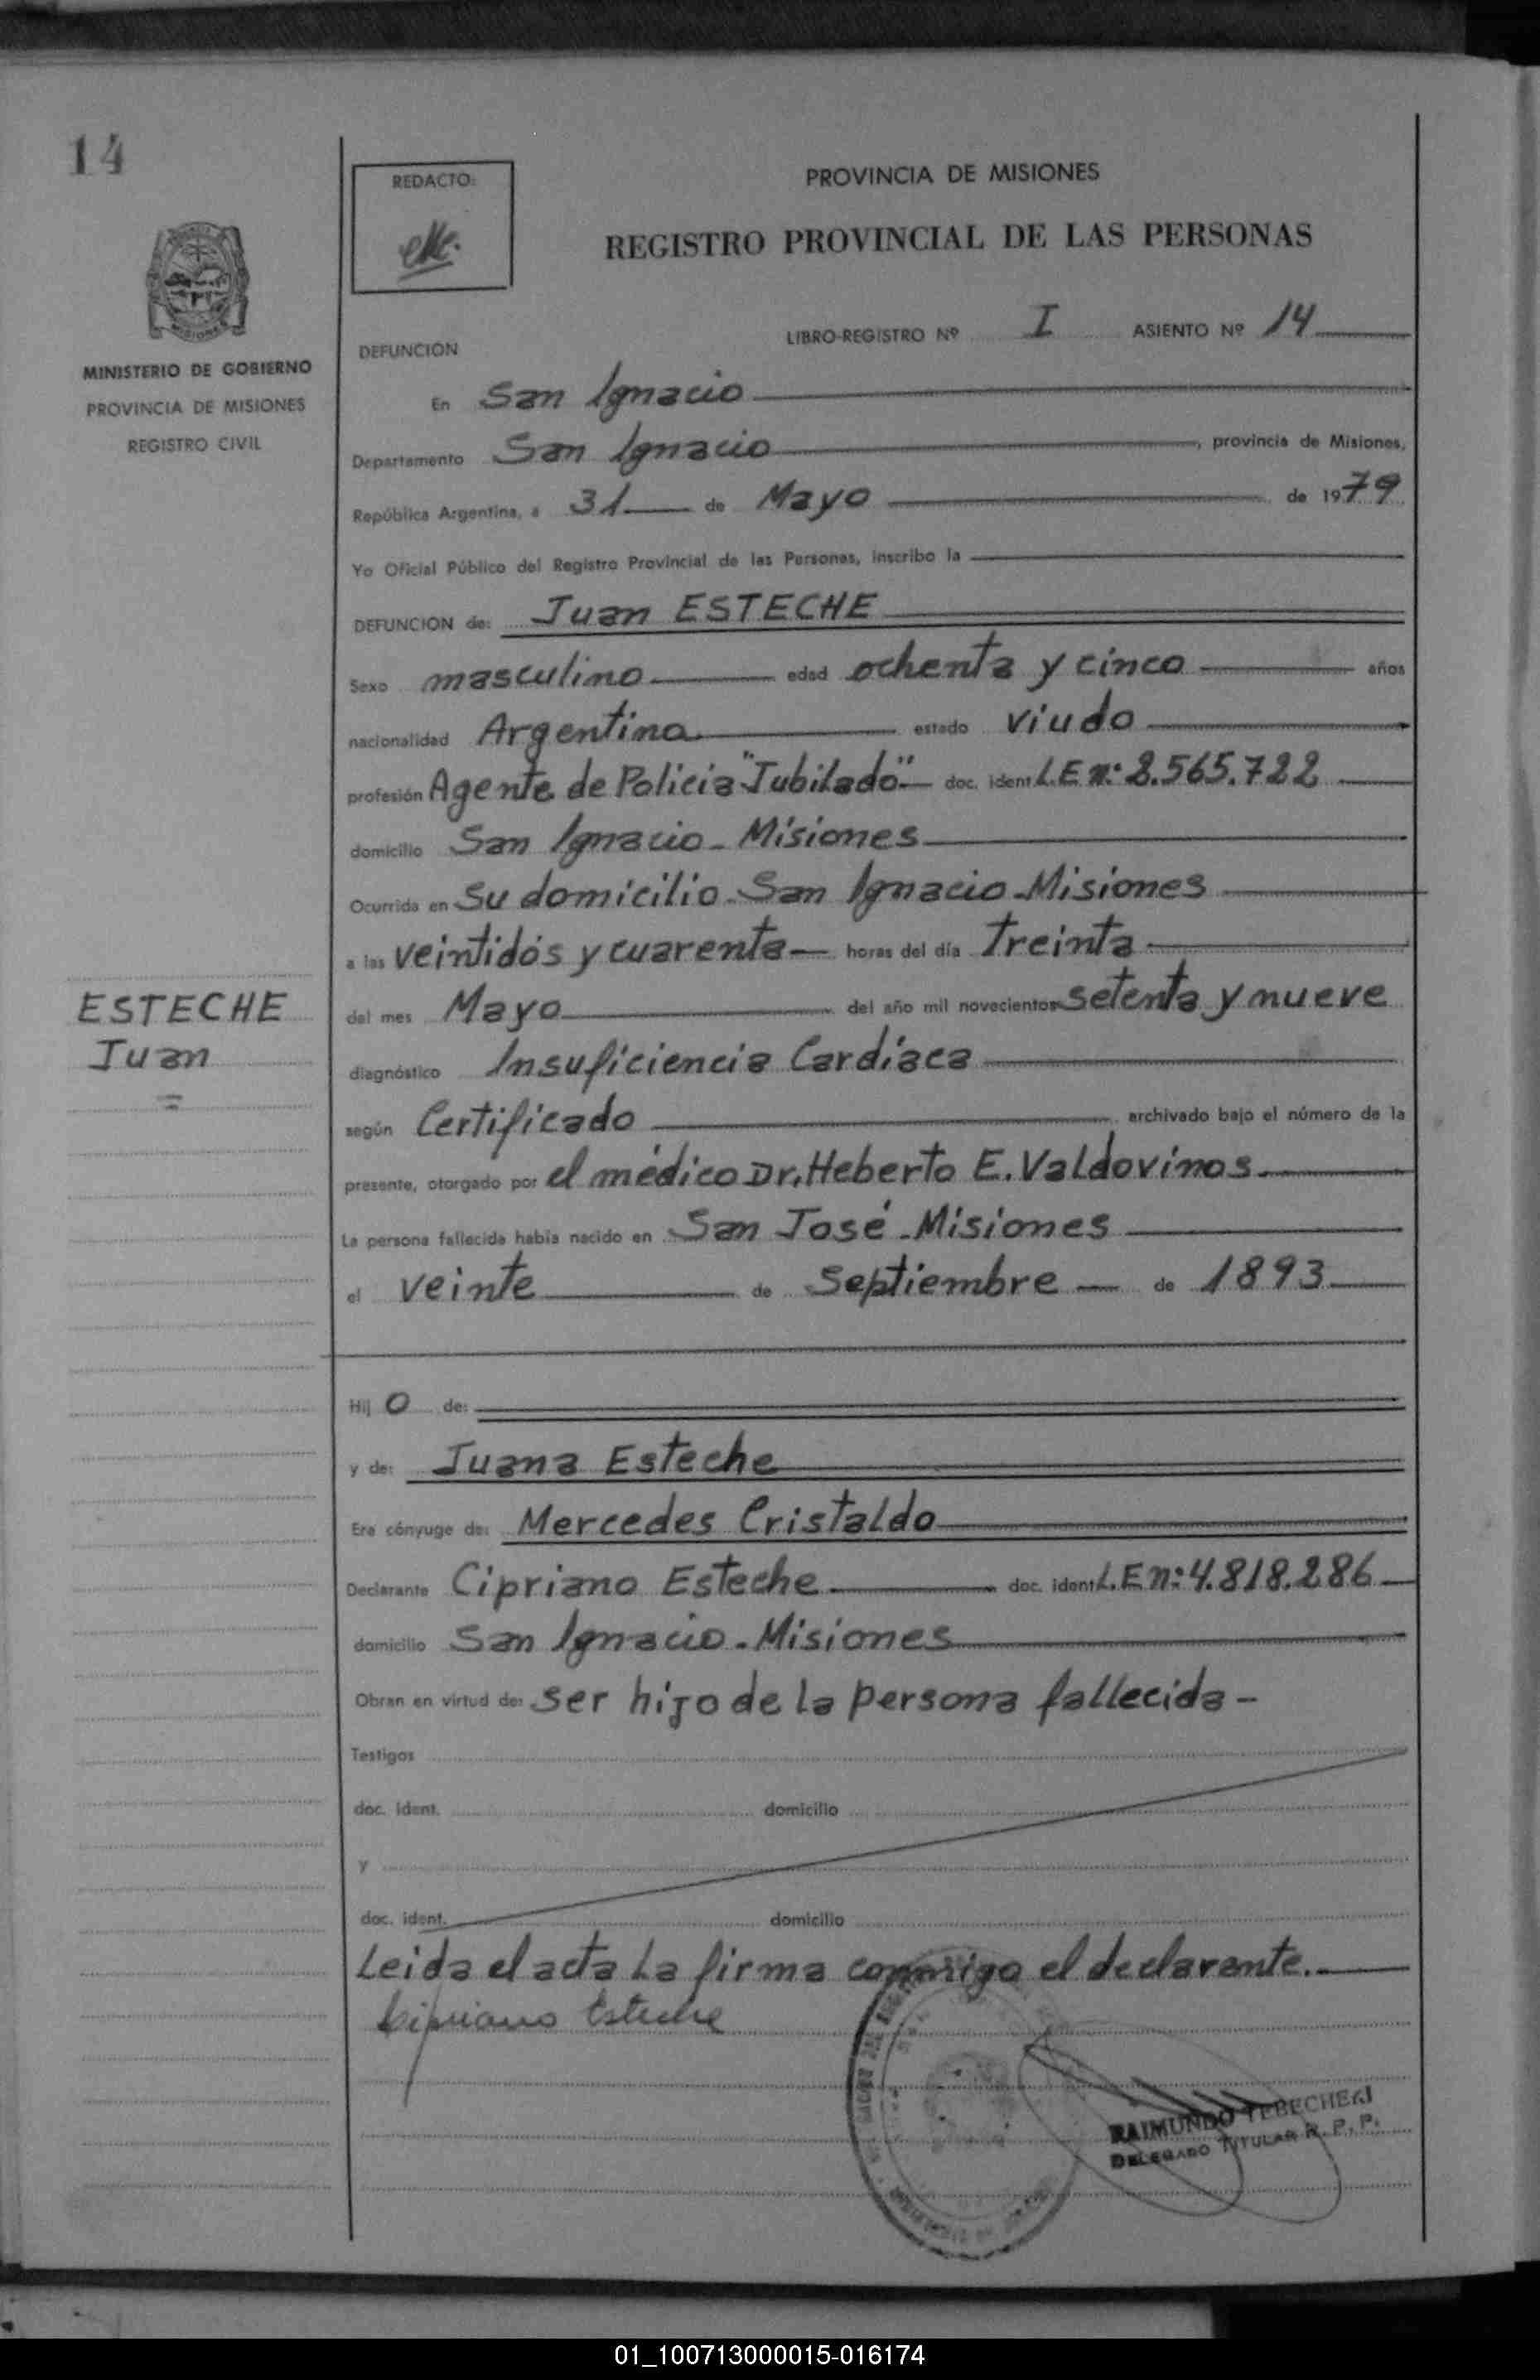 14
REDACTO:
PROVINCIA DE MISIONES
REGISTRO PROVINCIAL DE LAS PERSONAS
MISIONES
MINISTERIO DE GOBIERNO
PROVINCIA DE MISIONES
REGISTRO CIVIL
LIBRO-REGISTRO Nº I ASIENTO Nº 14
DEFUNCION
En San Ignacio
Departamento San Ignacio, provincia de Misiones,
República Argentina, a 31 de Mayo de 1979
Yo Oficial Público del Registro Provincial de las Personas, inscribo la
DEFUNCION de: Juan ESTECHE
Sexo masculino edad ochenta y cinco años
nacionalidad Argentina estado viudo
profesión Agente de Policia "Jubilado" doc. ident. L.E n: 2.565.722
domicilio San Ignacio - Misiones
Ocurrida en Su domicilio - San Ignacio - Misiones
a las veintidós y cuarenta horas del día treinta
del mes Mayo del año mil novecientos setenta y nueve
ESTECHE
Juan
=
diagnóstico Insuficiencia Cardíaca
según Certificado archivado bajo el número de la
presente, otorgado por el médico Dr. Heberto E. Valdovinos
La persona fallecida había nacido en San José - Misiones
el veinte de Septiembre de 1893
Hij O de:
y de: Juana Esteche
Era cónyuge de: Mercedes Cristaldo
Declarante Cipriano Esteche doc. ident. L.E n: 4.818.286
domicilio San Ignacio - Misiones
Obran en virtud de: ser hijo de la persona fallecida -
Testigos
doc. ident. domicilio
y
doc. ident. domicilio
Leida el acta La firma conmigo el declarante.
Cipriano Esteche
RAIMUNDO
DELEGADO TITULAR R. P. P.
01_100713000015-016174